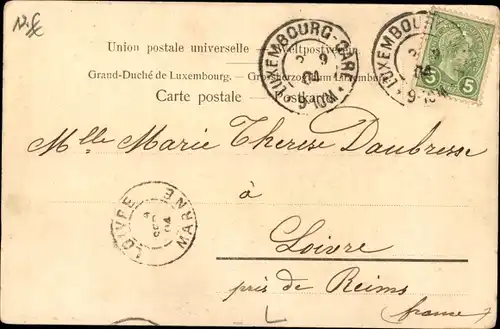 Union postale universelle — Weltpostverein
Grand-Duché de Luxembourg. — Grossherzogtum Luxemburg
Carte postale — Postkarte
LUXEMBOURG-GARE
9
04
9-10M
LUXEMBOURG
9
04
9-10M
5 5
Mlle Marie Therese Daubresse
à
Loivre
près de Reims
(france)
LOIVRE
MARNE
04
L